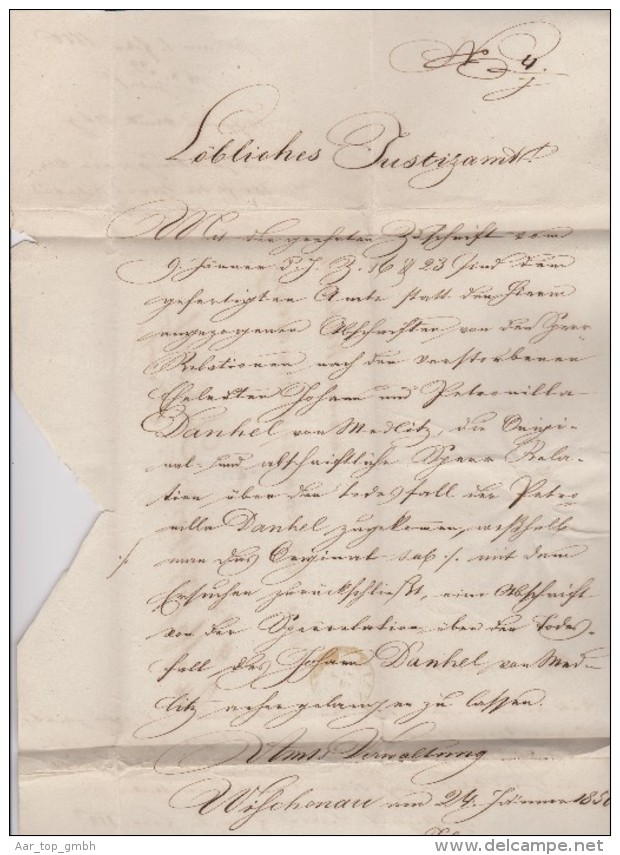 No 4.
Löbliches Justizamt!
Mit der geehrten Zuschrift vom
9. Jänner d. J. Z. 16 & 23 sind dem
gefertigten Amte statt den hierin
angezogenen Abschriften von den Sperr-
Relationen nach den verstorbenen
Eheleuten Johann und Petronilla
Danhel von Medlitz, die Origi-
nal- und abschriftliche Sperr Rela-
tion über den Todesfall der Petro
nilla Danhel zugekommen, weßhalb
man das Original sub ./. mit dem
./.
Ersuchen zurückschließt, eine Abschrift
von der Sperrrelation über den Todes-
fall des Johann Danhel von Med-
litz anher gelangen zu lassen.
Amts Verwaltung
Wischenau am 24. Jänner 1850
Aar_top_gmbh
www.delcampe.net